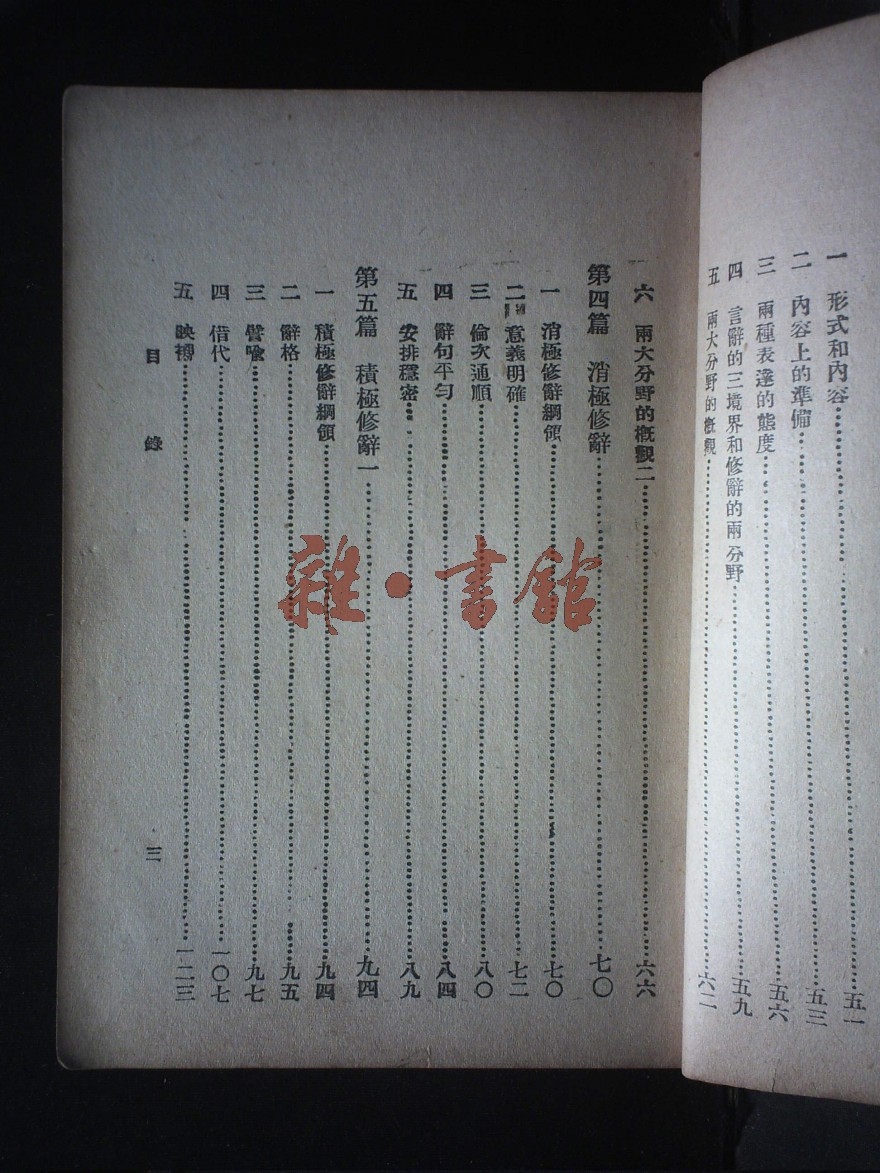 一 形式和內容……五一
二 內容上的準備……五三
三 兩種表達的態度……五六
四 言辭的三境界和修辭的兩分野……五九
五 兩大分野的概觀……六二
六 兩大分野的概觀二……六六
第四篇 消極修辭……七〇
一 消極修辭綱領……七〇
二 意義明確……七二
三 倫次通順……八〇
四 辭句平勻……八四
五 安排穩密……八九
第五篇 積極修辭一……九四
一 積極修辭綱領……九四
二 辭格……九五
三 譬喻……九七
四 借代……一〇七
五 映襯……一二三
目錄 三
雜·書館